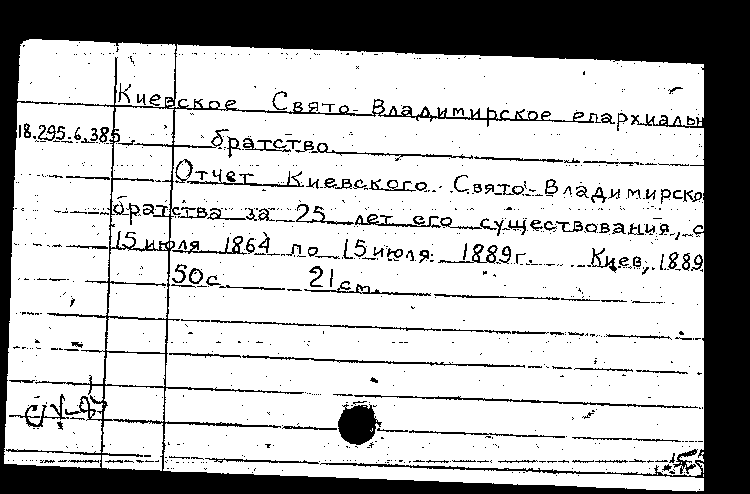 Киевское Свято-Владимирское епархиальн
18.295.6.385. братство.
Отчет Киевского Свято-Владимирско
братства за 25 лет его существования, с
15 июля 1864 по 15 июля 1889 г. Киев, 1889
50 с. 21 см.